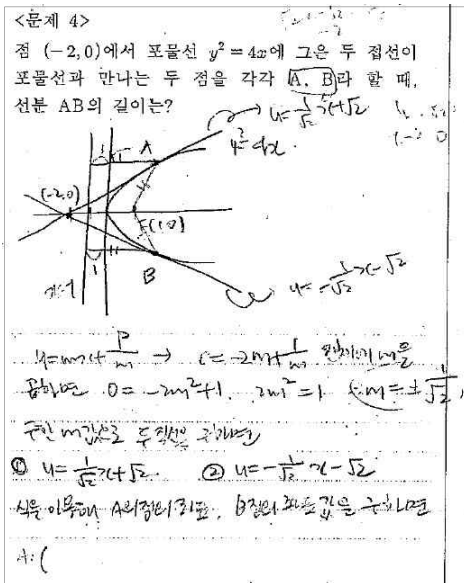 <문제 4>
점 (-2,0)에서 포물선 y²=4x에 그은 두 접선이
포물선과 만나는 두 점을 각각 A, B라 할 때,
선분 AB의 길이는?
y=1/√2 x+√2
y²=4x.
A
(-2,0)
F(1,0)
B
x=-1
y=-1/√2 x-√2
y=mx+P/m → 0=-2m+1/m 양변에 m을
곱하면 0=-2m²+1. 2m²=1 m=±1/√2,
구한 m값으로 두 직선을 구하면
① y=1/√2 x+√2 ② y=-1/√2 x-√2
식을 이용해 A의 점의 좌표, B점의 좌표값을 구하면
A:(